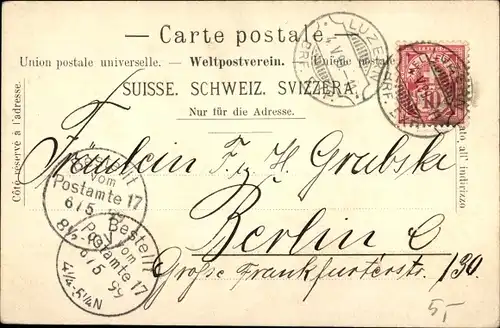 — Carte postale. —
Union postale universelle. — Weltpostverein. — Unione postale
SUISSE. SCHWEIZ. SVIZZERA.
Nur für die Adresse.
Côté réservé à l'adresse.
all' indirizzo
LUZERN
V. 99
BRF.
HELVETIA
10
Fräulein F. u. H. Grabske
Berlin C
Große Frankfurterstr. 130.
Bestellt
vom
Postamte 17
6/5 99
8½
Bestellt
vom
Postamte 17
6/5 99
4¼-5¼N
5,-